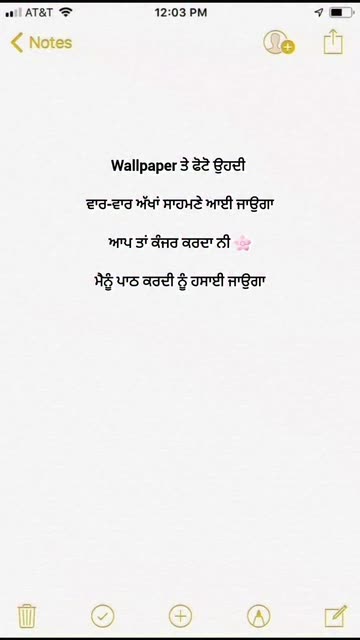 AT&T 12:03 PM
Notes
Wallpaper ਤੇ ਫੋਟੋ ਉਹਦੀ
ਵਾਰ-ਵਾਰ ਅੱਖਾਂ ਸਾਹਮਣੇ ਆਈ ਜਾਊਗਾ
ਆਪ ਤਾਂ ਕੰਜਰ ਕਰਦਾ ਨੀ 🌸
ਮੈਨੂੰ ਪਾਠ ਕਰਦੀ ਨੂੰ ਹਸਾਈ ਜਾਊਗਾ